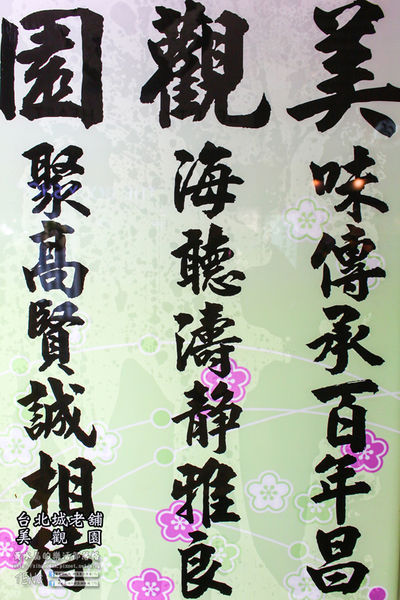 美觀園
美味傳承百年昌
觀海聽濤靜雅良
園聚高賢誠相
台北城老舖
美觀園